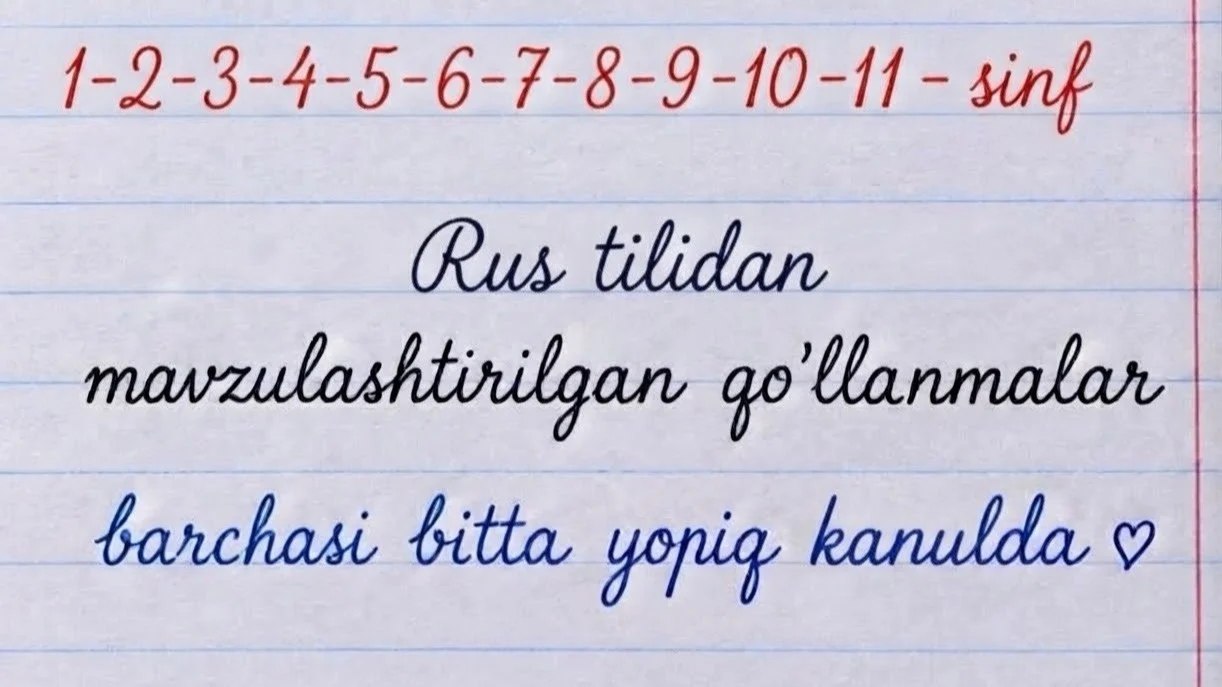 1-2-3-4-5-6-7-8-9-10-11 - sinf
Rus tilidan
mavzulashtirilgan qo'llanmalar
barchasi bitta yopiq kanulda ♡